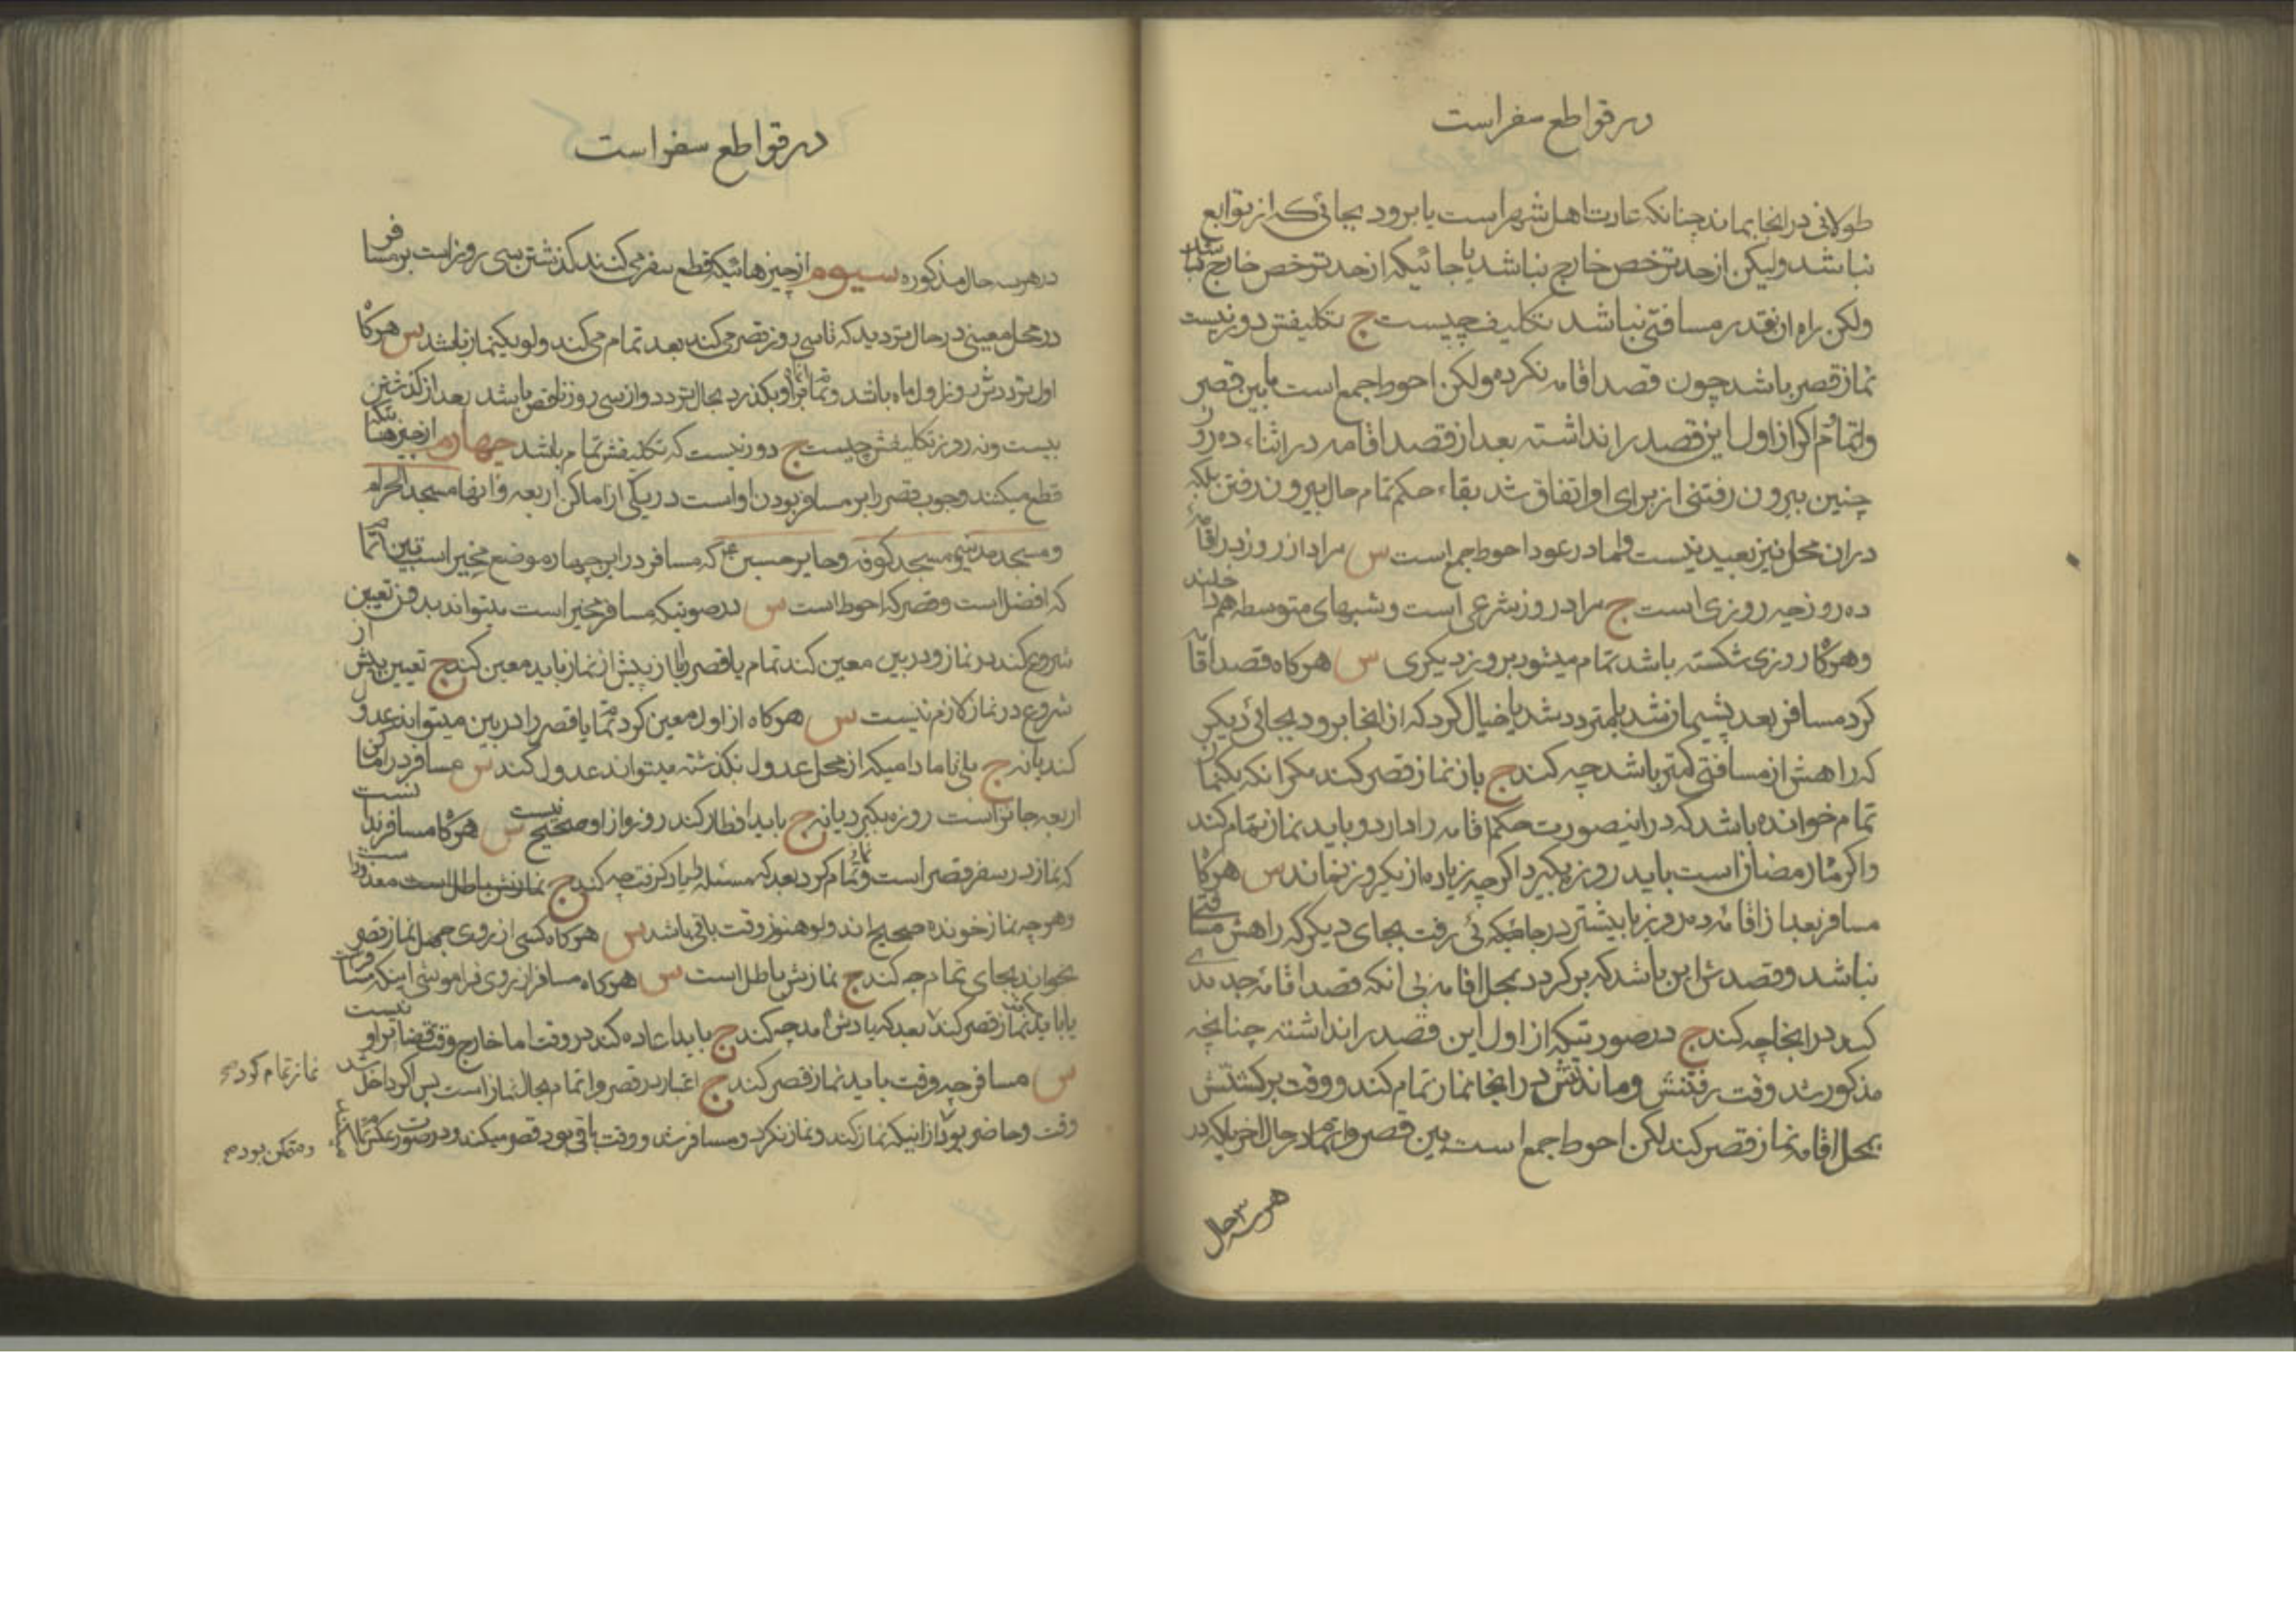 در قواطع سفر است
طولانی در انجا بماند چنانکه عادت اهل شهر است یا برود بجائی که از توابع
نباشد ولیکن از حد ترخص خارج نباشد یا جائیکه از حد ترخص خارج باشد
ولکن راه انقدر مسافتی نباشد تکلیف چیست ج تکلیفش دور نیست
نماز قصر باشد چون قصد اقامه نکرده ولکن احوط جمع است مابین قصر
واتمام و اکر از اول این قصد را نداشته بعد از قصد اقامه در اثناء ده روز
چنین بیرون رفتنی از برای او اتفاق شد بقاء حکم تمام حال بیرون رفتن بلکه
در ان محل نیز بعید نیست واما در عود احوط جمع است س مراد از روز در اقامه
ده روز چه روزی است ج مراد روز شرعی است و شبهای متوسطه هم داخلند
وهرکاه روزی شکسته باشد تمام میشود بروز دیکری س هرکاه قصد اقامه
کرد مسافر بعد پشیمان شد یا متردد شد یا خیال کرد که از انجا برود بجائی دیکر
که راهش از مسافتی کمتر باشد چه کند ج باز نماز قصر کند مکر انکه یکنماز
تمام خوانده باشد که در اینصورت حکم اقامه را دارد و باید نماز تمام کند
واکر ماه رمضان است باید روزه بکیرد اکرچه زیاده از یکروز نماند س هرکاه
مسافر بعد از اقامه ده روز یا بیشتر در جائیکه رفت بجای دیکر که راهش مسافتی
نباشد و قصدش این باشد که برکردد بمحل اقامه بی انکه قصد اقامه جدیدی
کند در انجا چه کند ج در صورتیکه از اول این قصد را نداشته چنانچه
مذکور شد وقت رفتنش و ماندنش در انجا نماز تمام کند و وقت برکشتنش
بمحل اقامه نماز قصر کند لکن احوط جمع است بین قصر واتمام در حال اخر بلکه در
هر سه حال
در قواطع سفر است
در هر سه حال مذکوره سیوم از چیزهائیکه قطع سفر می کنند کذشتن سی روز است بر مسافر
در محل معینی در حال تردید که تا سی روز قصر می کند بعد تمام می کند ولو یکنماز باشد س هرکاه
اول ترددش روز اول ماه باشد و تمام انماه بر او بکذرد بحال تردد و از سی روز ناقص باشد بعد از کذشتن
بیست ونه روز تکلیفش چیست ج دور نیست که تکلیفش تمام باشد چهارم از چیزهائیکه
قطع میکند وجوب قصر را بر مسافر بودن او است در یکی از اماکن اربعه و انها مسجد الحرام
ومسجد مدینه و مسجد کوفه و حایر حسین ع که مسافر در این چهار موضع مخیر است بین اتمام
که افضل است و قصر که احوط است س در صورتیکه مسافر مخیر است میتواند بدون تعیین
شروع کند در نماز و در بین معین کند تمام یا قصر را یا از پیش از نماز باید معین کند ج تعیین پیش از
شروع در نماز لازم نیست س هرکاه از اول معین کرد تمام یا قصر را در بین میتواند عدول
کند یا نه ج بلی تا مادامیکه از محل عدول نکذشته میتواند عدول کند س مسافر در اماکن
اربعه جائز است روزه بکیرد یا نه ج باید افطار کند روزه از او صحیح نیست س هرکاه مسافر ندانست
که نماز در سفر قصر است و نماز تمام کرد بعد که مسئله را یاد کرفت چه کند ج نمازش باطل است معذور است
وهرچه نماز خونده صحیح اند ولو هنوز وقت باقی باشد س هرکاه کسی از روی جهل نماز قصر
بخواند بجای تمام چه کند ج نمازش باطل است س هرکاه مسافر از روی فراموشی اینکه مسافر است
یا باید نماز قصر کند بعد که یادش امد چه کند ج باید اعاده کند در وقت اما خارج وقت قضا بر او نیست
س مسافر چه وقت باید نماز قصر کند ج اعتبار در قصر و اتمام بحال نماز است پس اکر داخل شد
وقت و حاضر بود از اینکه نماز کند و نماز نکرد و مسافر شد و وقت باقی بود قصر میکند و در صورت عکس
نماز تمام کرده
ومتمکن بوده